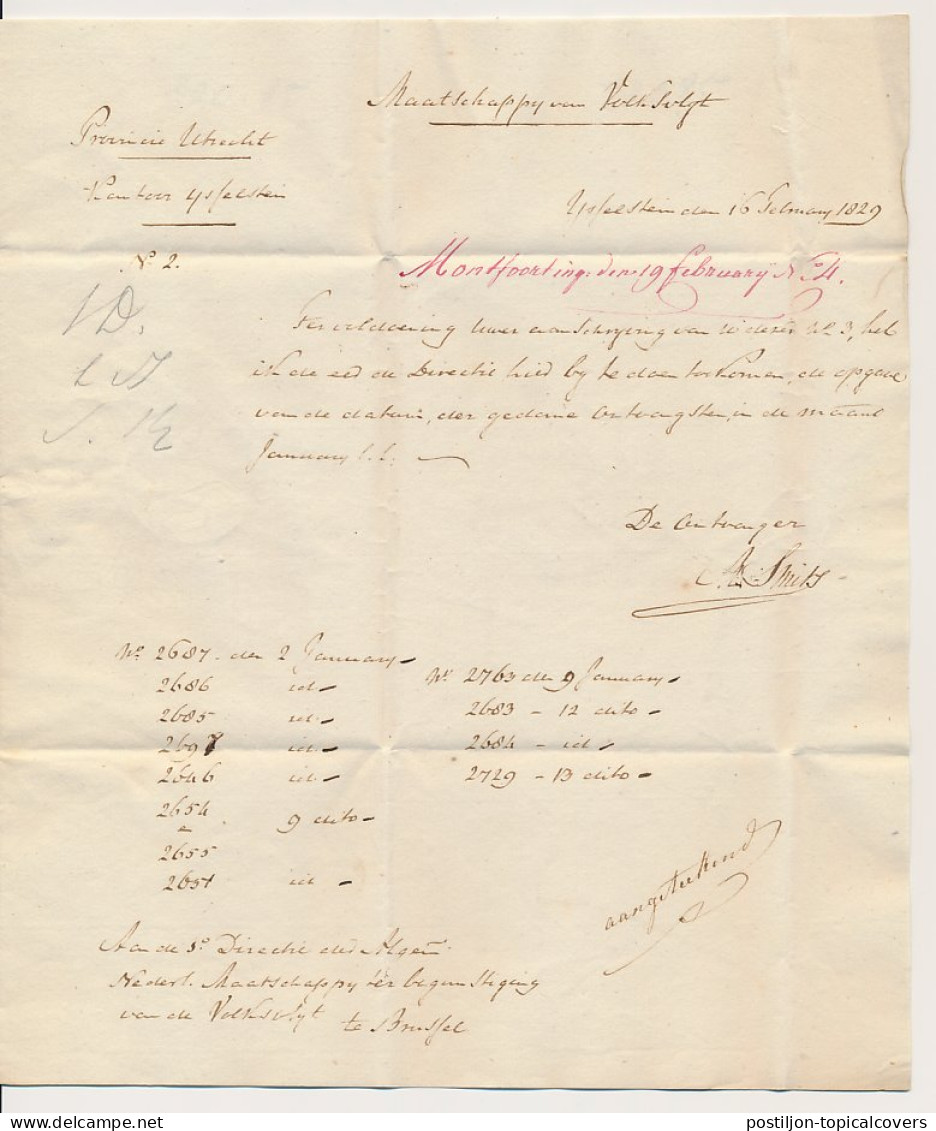 Maatschappy van Volksvlyt
Provincie Utrecht
Kantoor Ysselstein
Ysselstein den 16 February 1829
No 2.
Montfoort ing. den 19 february No 54.
Ter voldoening Uwer aanschryving van No 3, heb
ik de eer de Directie hier by te doen toekomen, de opgave
van de datum, der gedane Ontvangsten, in de maand
January l.l.
De Ontvanger
Smits
No 2687 den 2 January
2686 id
2685 id
2697 id
2646 id
2654 9 dito
2655
2651 id
No 2763 den 9 January
2683 - 12 dito
2684 - id
2729 - 13 dito
aangeteekend
Aan de Directie der Algem
Nederl. Maatschappy ter begunstiging
van de Volksvlyt te Brussel
postiljon-topicalcovers